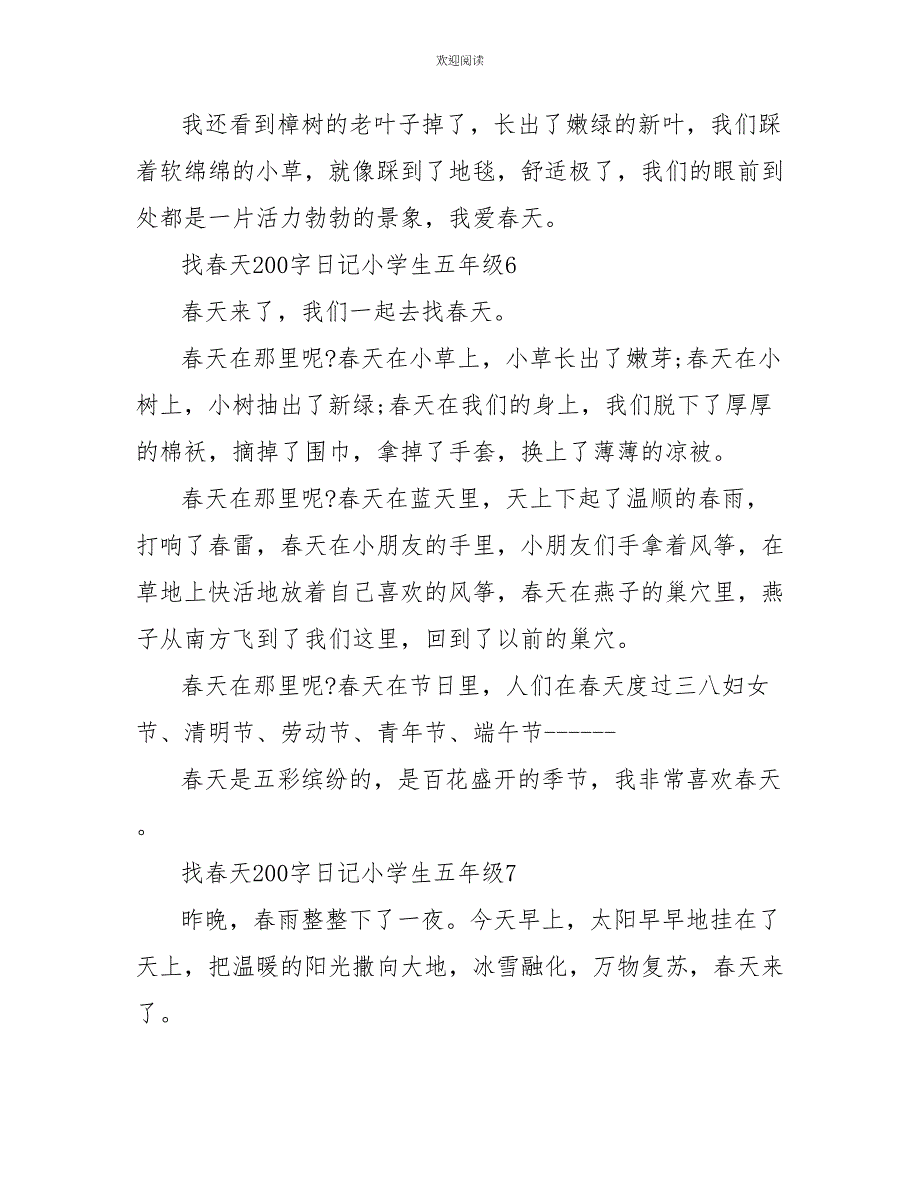 欢迎阅读
我还看到樟树的老叶子掉了，长出了嫩绿的新叶，我们踩
着软绵绵的小草，就像踩到了地毯，舒适极了，我们的眼前到
处都是一片活力勃勃的景象，我爱春天。
找春天200字日记小学生五年级6
春天来了，我们一起去找春天。
春天在那里呢?春天在小草上，小草长出了嫩芽;春天在小
树上，小树抽出了新绿;春天在我们的身上，我们脱下了厚厚
的棉袄，摘掉了围巾，拿掉了手套，换上了薄薄的凉被。
春天在那里呢?春天在蓝天里，天上下起了温顺的春雨，
打响了春雷，春天在小朋友的手里，小朋友们手拿着风筝，在
草地上快活地放着自己喜欢的风筝，春天在燕子的巢穴里，燕
子从南方飞到了我们这里，回到了以前的巢穴。
春天在那里呢?春天在节日里，人们在春天度过三八妇女
节、清明节、劳动节、青年节、端午节------
春天是五彩缤纷的，是百花盛开的季节，我非常喜欢春天
。
找春天200字日记小学生五年级7
昨晚，春雨整整下了一夜。今天早上，太阳早早地挂在了
天上，把温暖的阳光撒向大地，冰雪融化，万物复苏，春天来
了。